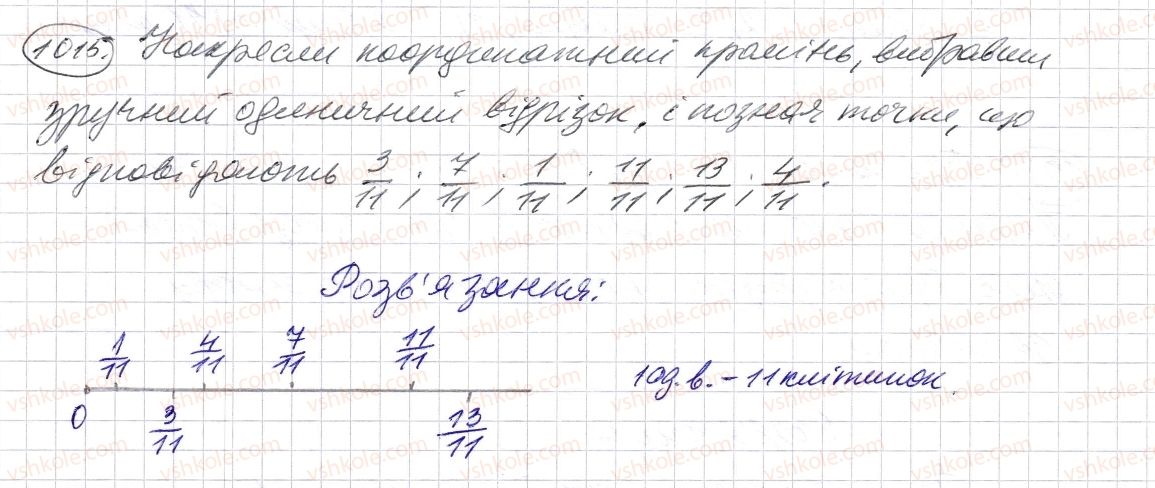 1015. Накресли координатний промінь, вибравши
зручний одиничний відрізок, і познач точки, що
відповідають 3/11; 7/11; 1/11; 11/11; 13/11; 4/11.
Розв'язання:
1/11 4/11 7/11 11/11
1 од. в. – 11 клітинок.
0 3/11 13/11
vshkole.com